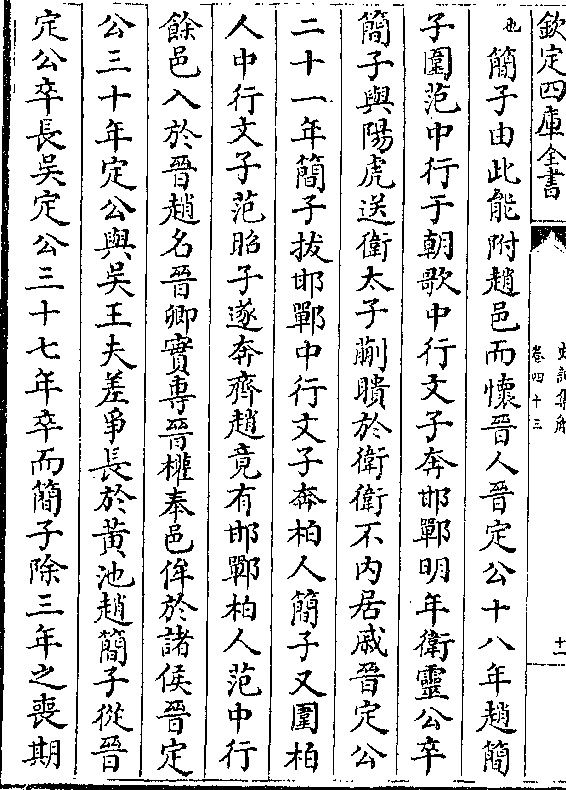 欽定四庫全書
史記集解
卷四十三
十一
也簡子由此能附趙邑而懷晉人晉定公十八年趙簡
子圍范中行于朝歌中行文子奔邯鄲明年衛靈公卒
簡子與陽虎送衛太子蒯聵於衛衛不内居戚晉定公
二十一年簡子拔邯鄲中行文子奔柏人簡子又圍柏
人中行文子范昭子遂奔齊趙竟有邯鄲柏人范中行
餘邑入於晉趙名晉卿實專晉權奉邑侔於諸侯晉定
公三十年定公與吳王夫差爭長於黃池趙簡子從晉
定公卒長吳定公三十七年卒而簡子除三年之喪期